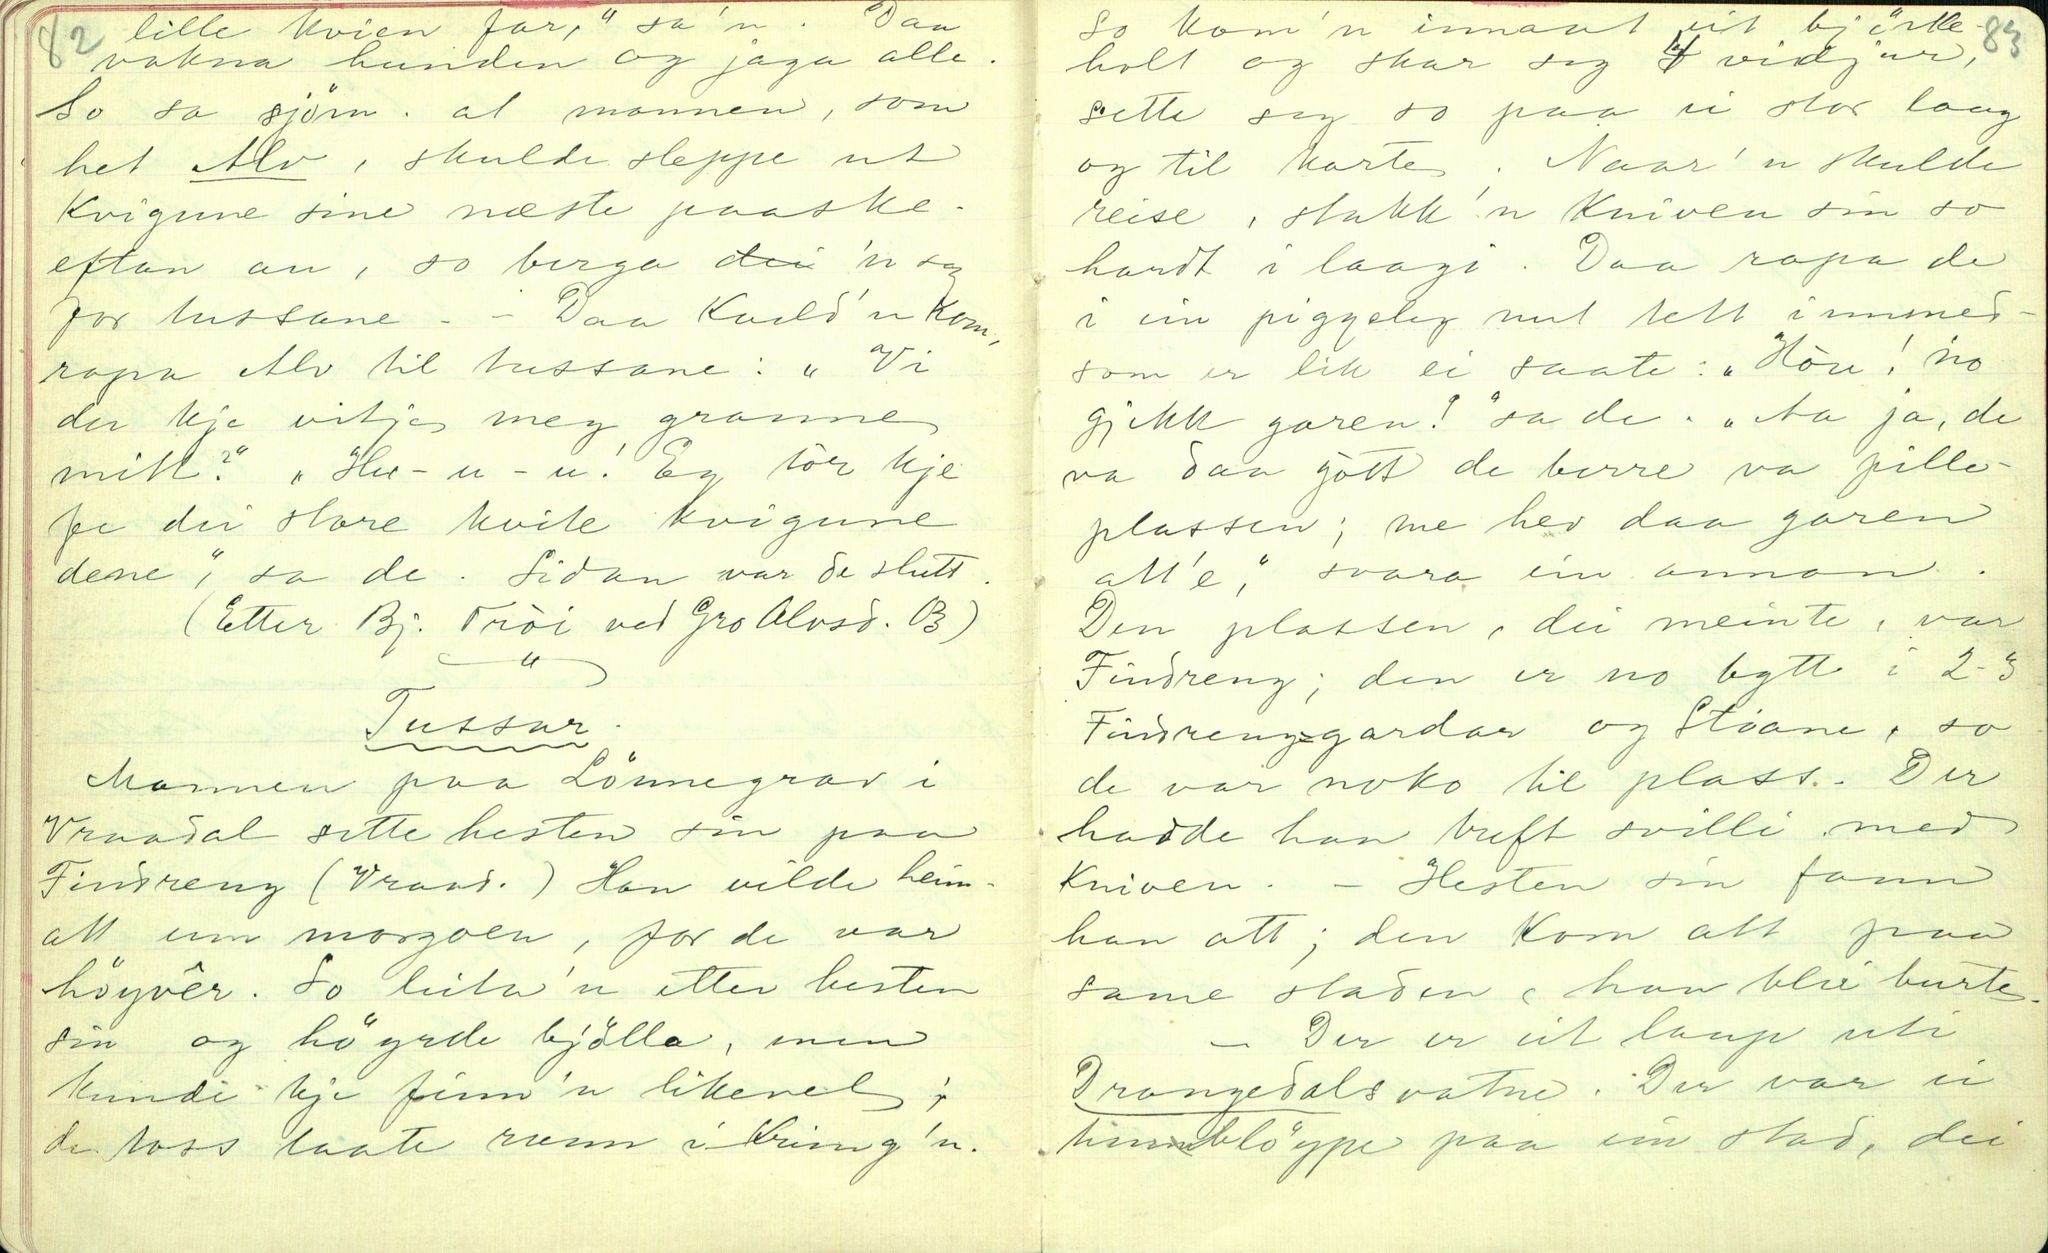 82
lille kvien far," sa'n. Daa
vakna hunden og jaga alle.
So sa sjöm. at mannen, som
het Alv, skulde sleppe ut
kvigune sine næste paaske-
eftan an, so berga dei 'n seg
for tussane. - Daa kveld'n kom,
ropa Alv til tussane: „Vi
du kje vitje meg granne
mitt?" „Hu-u-u! Eg tör kje
fe dei store kvite kvigune
dene", sa de. Sidan var de slutt.
(Etter Bj. Tröi ved Gro Alvsd. B)
"
Tussar.
Mannen paa Lönnegrav i
Vraadal sette hesten sin paa
Findreng (Vraad.) Han vilde heim-
att um morgoen, for de var
höyvêr. So leita 'n etter hesten
sin og höyrde bjölla, men
kunde kje finn'n likevel;
de toss laate runn i kring'n.
83
So kom'n innaat eit björke-
holt og skar seg vidjur,
sette seg so paa ei stor laag
og til karte. Naar'n skulde
reise, stakk'n kniven sin so
hardt i laagi. Daa ropa de
i ein piggeleg nut tett innmed
som er lik ei saate: „Höu! no
gjekk garen!" sa de. „Aa ja, de
va daa gött de berre va pille-
plassen; me hev daa garen
att'e," svara ein annan.
Den plassen, dei meinte, var
Findreng; den er no bytt i 2-3
Findrenggardar og Stöane, so
de var noko til plass. Der
hadde han treft svilli med
kniven. - Hesten sin fann
han att; den kom att paa
same staden, han blei burte.
- Der er eit laup uti
Drangedalsvatne. Der var ei
timmblöype paa ein stad, dei